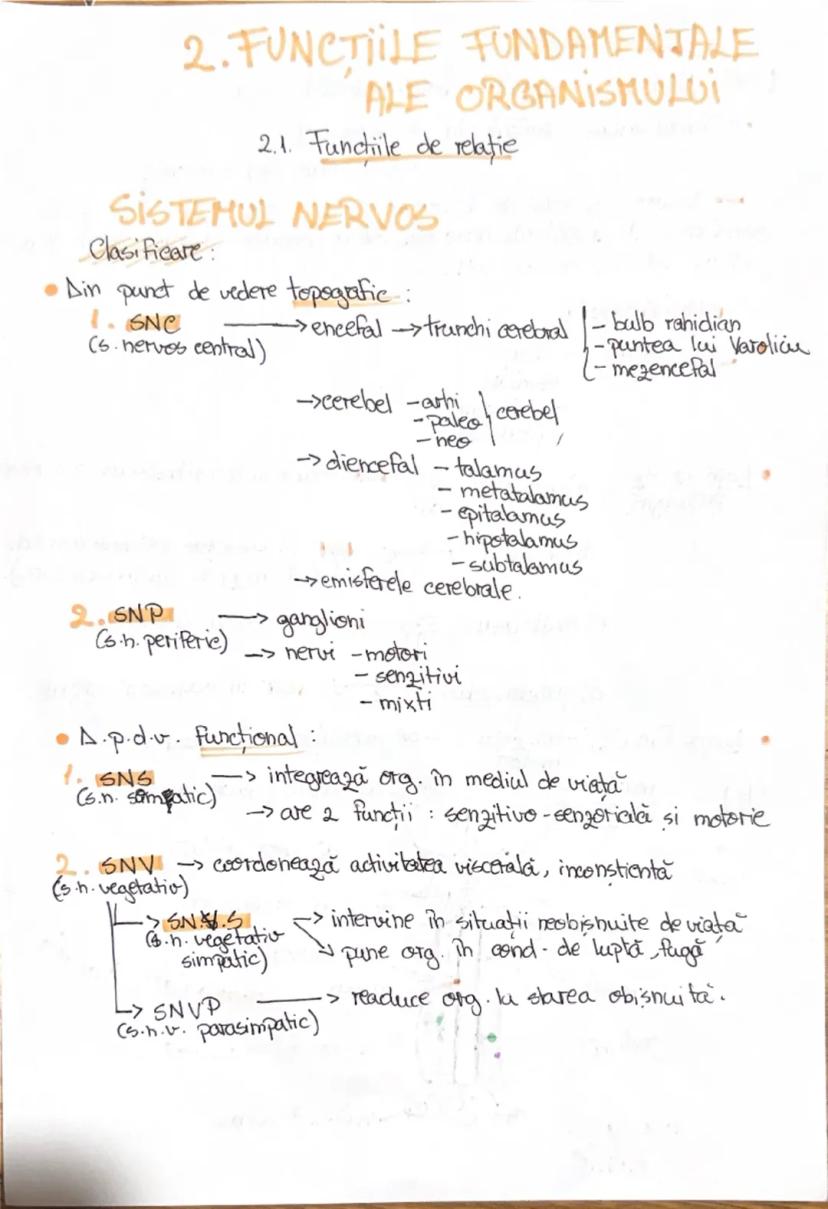 2. FUNCȚIILE FUNDAMENTALE
ALE ORGANISMULUI
2.1. Funcțiile de relație
SISTEMUL NERVOS
Clasificare:
• Din punct de vedere topografic:
1. SNC → encefal → trunchi cerebral - bulb rahidian
(s. nervos central) - puntea lui Varoliciu
- mezencefal
→ cerebel - arhi
- paleo cerebel
- neo
→ diencefal - talamus
- metatalamus
- epitalamus
- hipotalamus
- subtalamus
→ emisferele cerebrale.
2. SNP → ganglioni
(s.n. periferic) → nervi - motori
- senzitivi
- micști
• D.p.d.v. Funcțional:
1. SNS → integrează org. în mediul de viață
(s.n. somatic) → are 2 funcții: senzitivo-senzorială și motorie
2. SNV → coordonează activitatea viscerală, inconștientă
(s.n. vegetativ)
→ SNV.S → intervine în situații neobișnuite de viață
(s.n. vegetativ → pune org. în cond. de luptă, fugă
simpatic)
→ SNVP → readuce org. la starea obișnuită.
(s.n.v. parasimpatic)